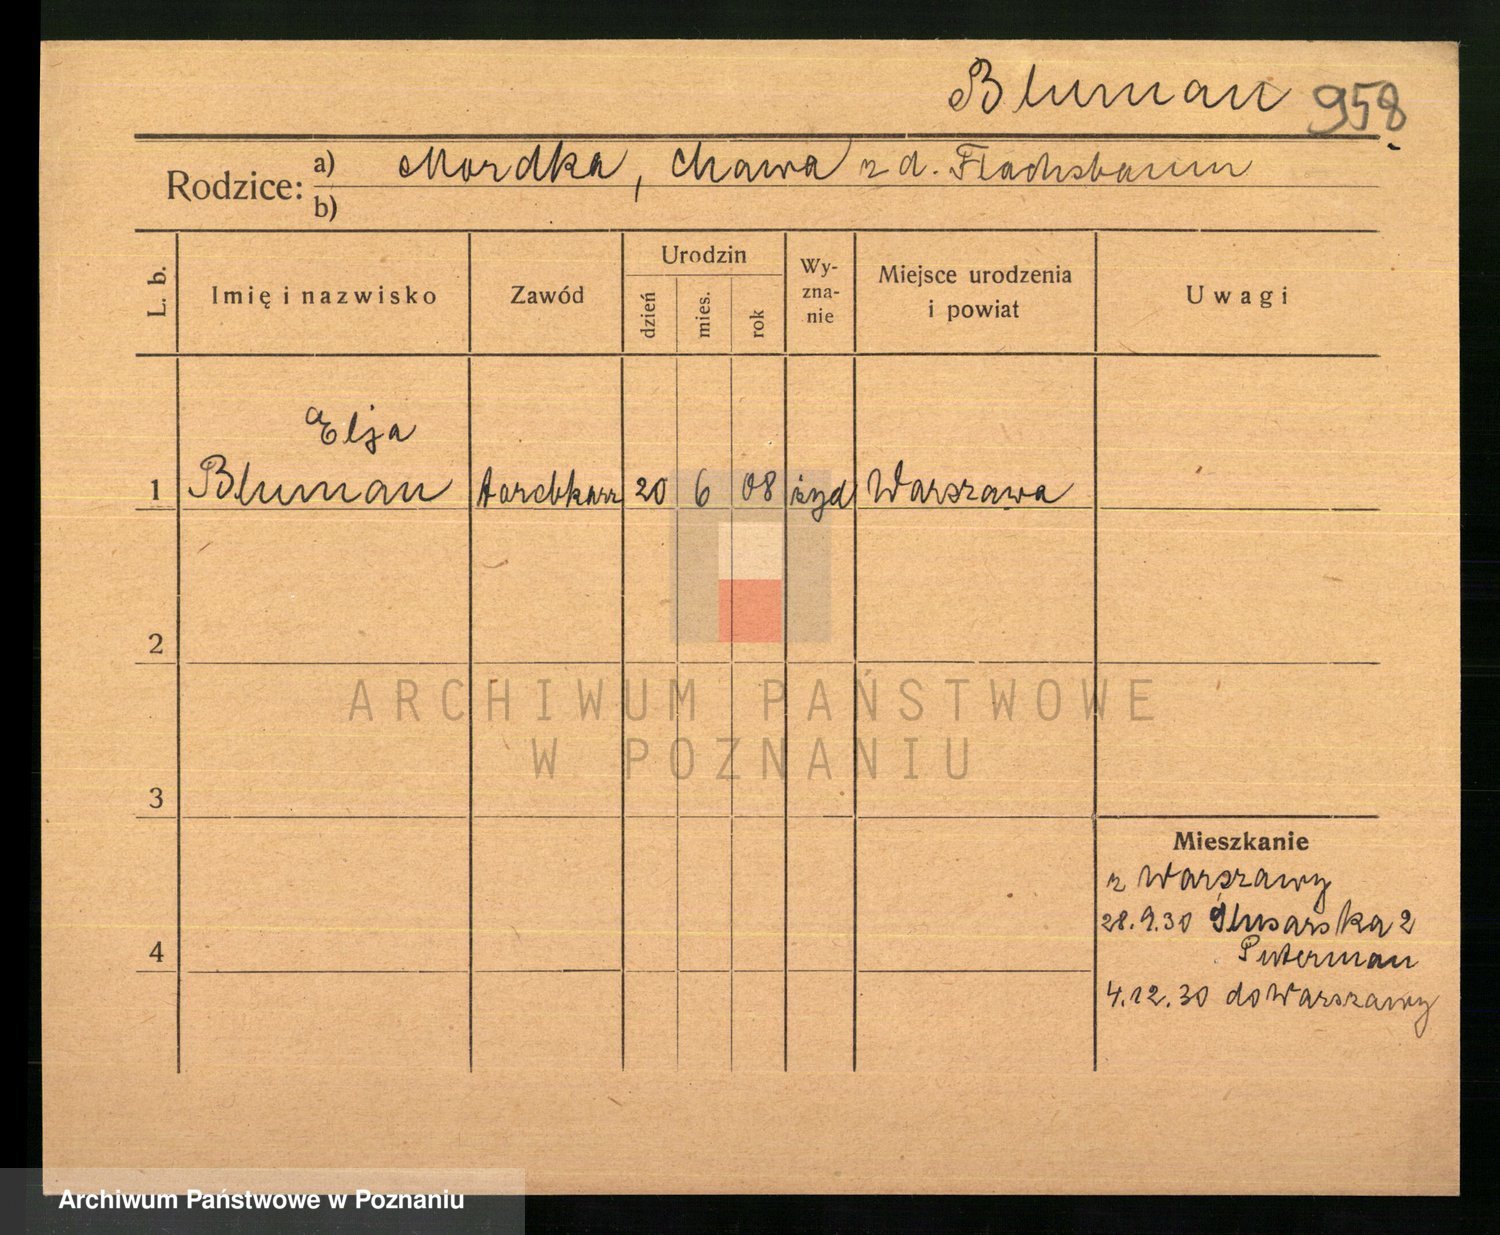 Bluman 958
Rodzice: a) Mordka, Chawa z d. Flachsbaum
b)
L. b. Imię i nazwisko Zawód Urodzin dzień mies. rok Wy-zna-nie Miejsce urodzenia i powiat Uwagi
Elja
1 Bluman 20 6 08 żyd Warszawa
2
3
4
Mieszkanie
z Warszawy
28.9.30 Ślusarska 2
Puterman
4.12.30 do Warszawy
ARCHIWUM PAŃSTWOWE
W POZNANIU
Archiwum Państwowe w Poznaniu